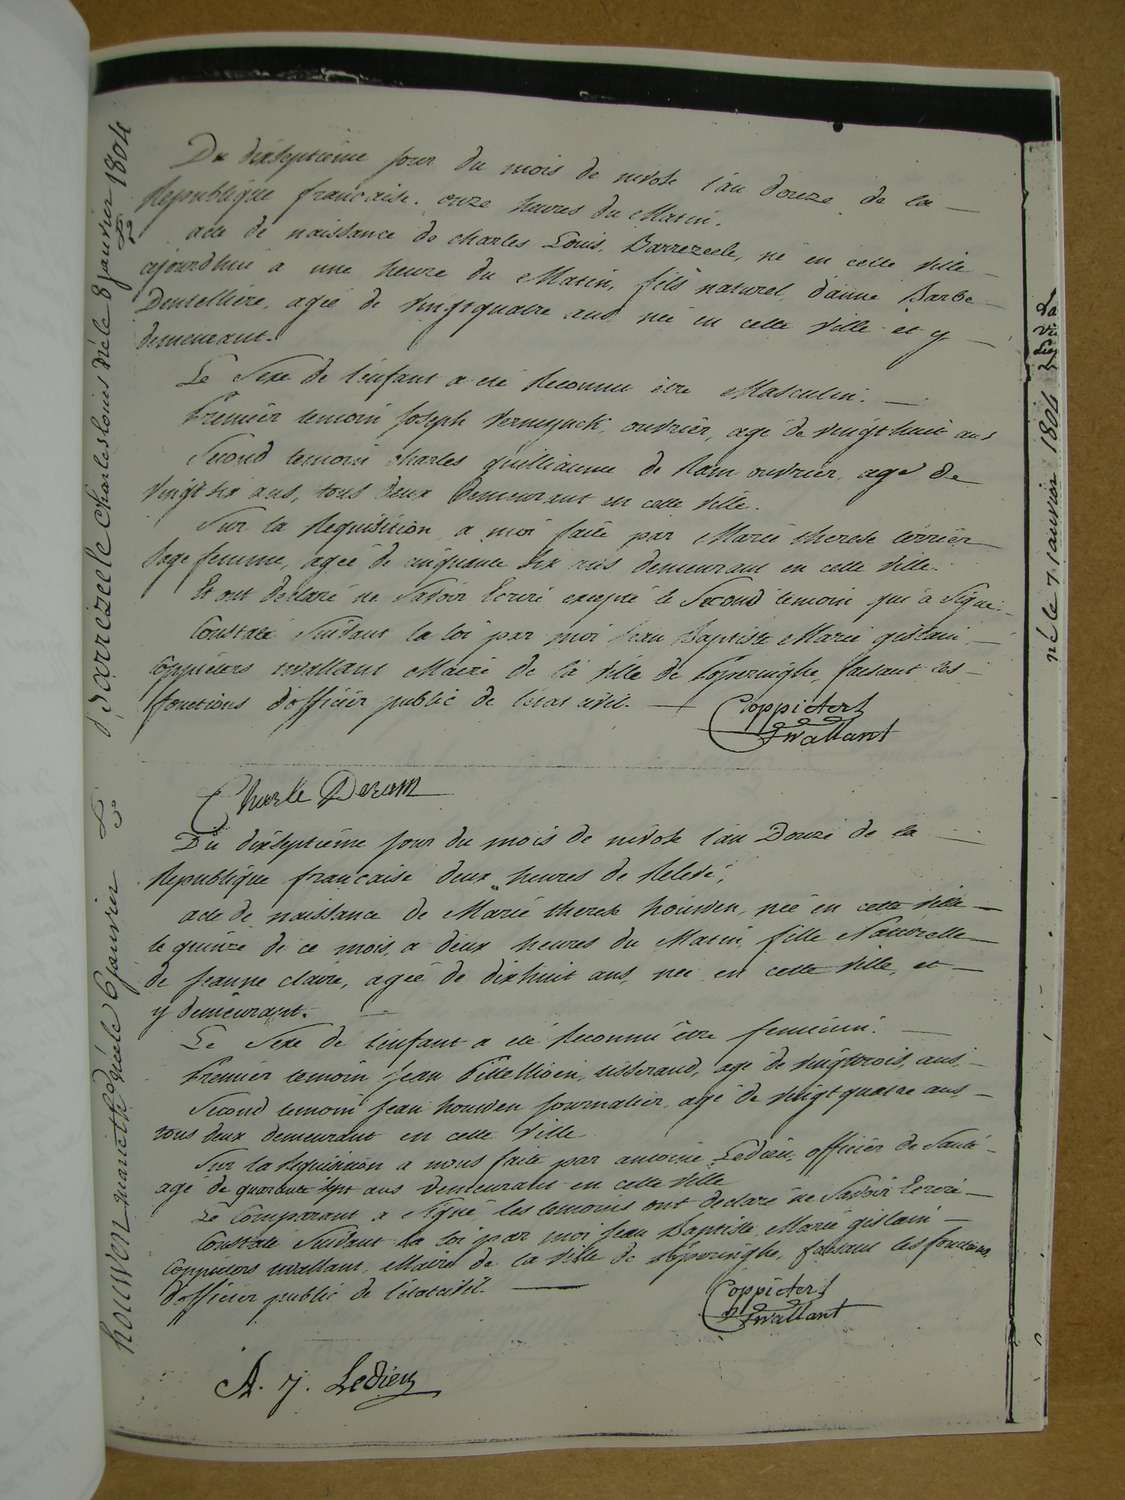 Du dixseptieme jour du mois de nivose l'an douze de la
Republique francaise. onze heures du Matin.
acte de naissance de charles Louis Barrezeele, né en cette ville
ajourdhui a une heure du Matin, fils naturel d'anne Barbe
Dentelliere, agée de vingtquatre ans née en cette ville et y
demeurant.
Le Sexe de l'enfant a eté Reconnu être Masculin.
Premier temoin Joseph Vermynck, ouvrier, agé de vingt huit ans
Second temoin charles guilliaume de Ram ouvrier, agé de
vingt six ans, tous deux demeurant en cette ville.
Sur la Requisition a moi faite par Marie therese
Sage femme, agée de cinquante six ans demeurant en cette ville.
Et ont declaré ne Savoir Ecrire excepté le Second temoin qui a Signé.
Constaté Suivant la loi par moi Jean Baptiste Marie gislain
Coppieters wallant Maire de la ville de Poperinghe, faisant les
fonctions d'officier public de l'etat civil.
Coppieters
wallant
Charle Deram
Du dixseptieme jour du mois de nivose l'an Douze de la
Republique francaise deux heures de Relevé,
acte de naissance de Marie therese houwen, née en cette ville
le quinze de ce mois, a deux heures du Matin fille Naturelle
de Jeanne claire, agée de dixhuit ans, née en cette ville, et
y demeurant.
Le Sexe de l'enfant a eté Reconnu être feminin.
Premier temoin Jean Pillellioen, tisserand, agé de vingttrois ans,
Second temoin Jean houwen journalier agé de vingt quatre ans
tous deux demeurant en cette ville
Sur la Requisition a nous faite par antoine Ledieu, officier de Santé
agé de quarante sept ans demeurant en cette ville
Le Comparant a Signé, les temoins ont declaré ne Savoir Ecrire
Constaté Suivant la loi par moi Jean Baptiste Marie gislain
Coppieters wallant, Maire de la ville de Poperinghe, faisant les fonctions
d'officier public de l'etat civil.
Coppieters
wallant
A. J. Ledieu
Barrezeele charles louis né le 8 janvier 1804
houwen marie th née le 6 janvier
né le 7 janvier 1804